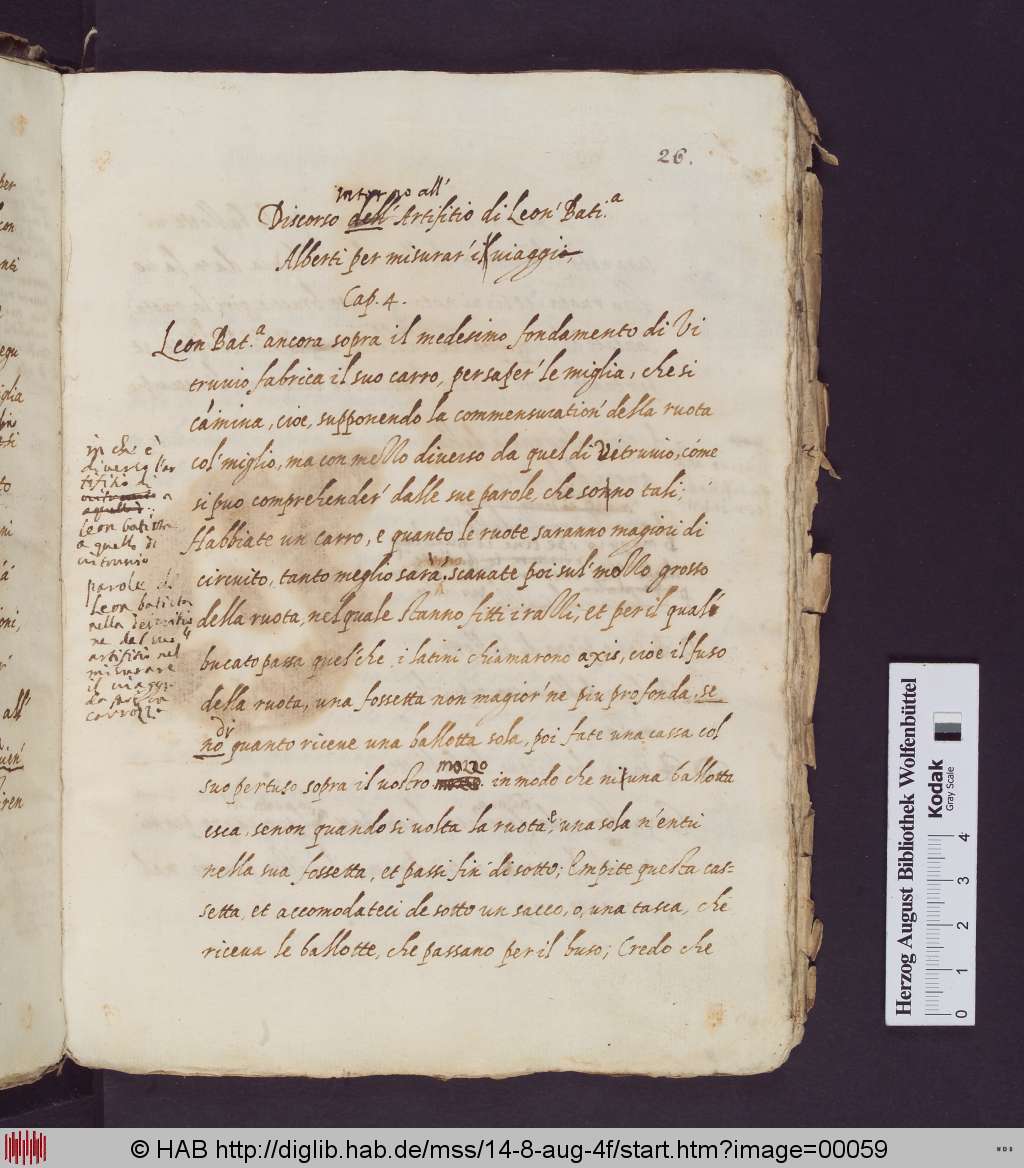 26.
intorno all'
Discorso dell' Artifitio di Leon' Bati.a
Alberti per misurar' il viaggio,
Cap. 4.
Leon Bat.a ancora sopra il medesimo fondamento di Vi
truuio fabrica il suo carro, per saper' le miglia, che si
camina, cioe, supponendo la commensuration' della ruota
col' miglio, ma con mezzo diuerso da quel di Vitruuio, come
si puo comprehender' dalle sue parole, che sonno tali;
Habbiate un carro, e quanto le ruote saranno magiori di
circuito, tanto meglio sarà. scauate poi sul' mozzo grosso
della ruota, nel quale stanno fitti i razzi, et per il qual'
bucato passa quel' che i latini chiamarono axis, cioe il fuso
della ruota, una fossetta non magior' ne piu profonda, se
no di quanto riceue una ballotta sola, poi fate una cassa col
suo pertuso sopra il uostro mozzo in modo che niuna ballotta
esca, se non quando si uolta la ruota, e una sola n'entri
nella sua fossetta, et passi fin' di sotto; Empite questa cas=
setta, et accomodateci de sotto un sacco, o, una tasca, che
riceua le ballotte, che passano per il buso; Credo che
in che è
diuerso l'ar
tifitio di
Leon batista
a quello di
uitruuio
parole di
Leon batista
nella
artifitio nel
misurare
il uiaggi
carrozza
all'
Herzog August Bibliothek Wolfenbüttel
Kodak
Gray Scale
0 1 2 3 4
© HAB http://diglib.hab.de/mss/14-8-aug-4f/start.htm?image=00059